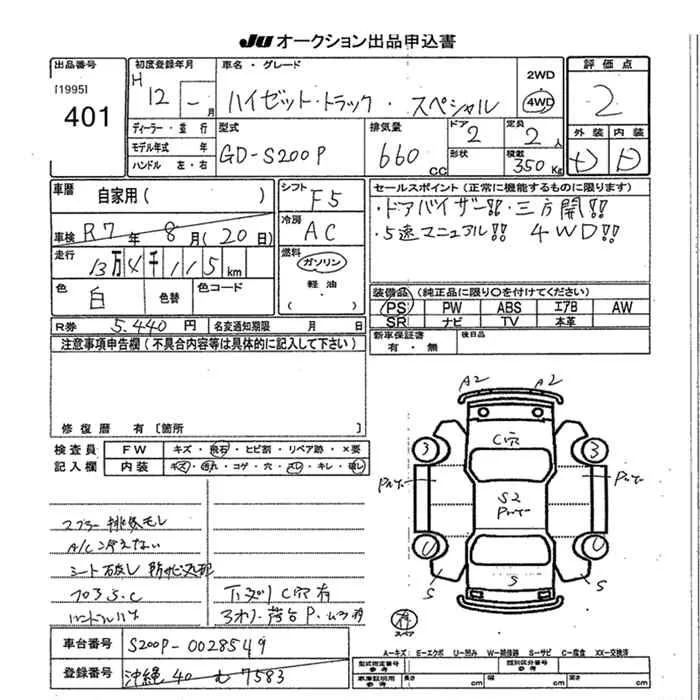 JU オークション出品申込書
出品番号
[1995]
401
初度登録年月
H 12 年 - 月
車名・グレード
ハイゼット・トラック・スペシャル
2WD
4WD
評価点
2
外装 内装
D D
ディーラー・並行
モデル年式 年
ハンドル 左・右
型式
GD-S200P
排気量
660 cc
ドア
2
形状
定員
2 人
積載
350 Kg
車歴
自家用( )
シフト
F5
車検
R7年 8月(20日)
冷房
AC
走行
13万4千115 km
燃料
ガソリン
軽油
( )
色
白
色替
色コード
セールスポイント(正常に機能するものに限ります)
・ドアバイザー!! ・三方開!!
・5速マニュアル!! 4WD!!
装備品(純正品に限り○を付けてください)
PS PW ABS エアB AW
SR ナビ TV 本革
新車保証書
有・無
後日品
R券 5.440円
名変通知期限 月 日
注意事項申告欄(不具合内容等は具体的に記入して下さい)
修復歴 有[箇所 ]
検査員
記入欄
FW キズ・飛石・ヒビ割・リペア跡・×要
内装 キズ・汚れ・コゲ・穴・スレ・キレ・破レ
マフラー排気モレ
A/C冷えない
シート破レ
フロアS.C
下ズリ C穴有
A2 A2
C穴
3 3
S2
S S S
有
スペア
車台番号
S200P-0028549
登録番号
沖縄 40 む 7583
A-キズ E-エクボ U-凹み W-補修跡 S-サビ C-腐食 XX-交換済
型式指定番号
参考
類別区分番号
参考
車庫証明用
参考
cm cm cm